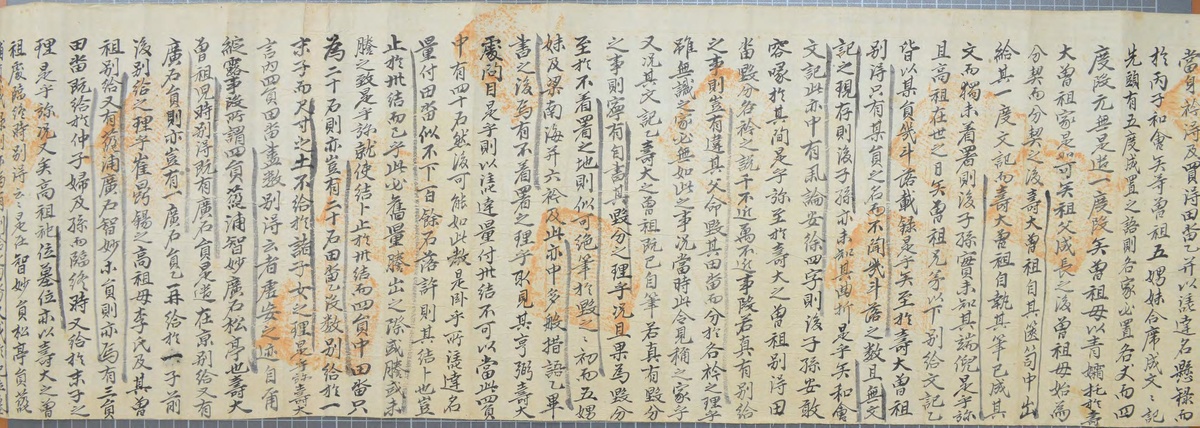 當身衿淂及買淂田畓乙 并以滛違名懸祿而
於丙子和會矣等曾祖五娚妹合席成文之記
先頭有五度成置之語則各家必置各丈而四
度段元無是遣一度段矣曾祖母以青孀托於壽
大曾祖家是如可矣祖父成長之後曾祖母始為
分契而分契之後壽大曾祖自其篋笥中出
給其一度文記而壽大曾祖自執其筆已成其
文而獨不着署則後子孫實未知其端倪是乎旀
且高祖在世之日矣曾祖兄等以下別給文記乙
皆以某員幾斗落載錄是乎矣至於壽大曾祖
別淂只有某員之名而不開幾斗落之數且無文
記之現存則後子孫亦未知其曲折是乎矣和會
文記此亦中有乱論安徐四字則後子孫安敢
容喙於其間是乎旀至於壽大之曾祖別淂田
當段分各衿之說千不近萬不近事段若真有別給
之事則豈有違其父命毀其田畓而分於各衿之理乎
雖無識之家必無如此之事况當時此合見稱之家乎
又况其文記乙壽大之曾祖既已自筆若真有毀分
之事則寧有自書其毀分之理乎况且果為毀分
至於不着署之地則似可絶筆於毀之之初而五娚
妹及梁南海并六衿及此亦中多般措語乙畢
書之後焉有不着署之理乎取見其亨弼壽大
處問目是乎則以滛違量付卅結不可以當此四員
中有四十石然後可能如此数是卧乎所滛違名
量付田畓似不下百餘石落許則其結卜也豈
止於卅結而已乎此必舊量謄出之際或謄或未
謄之致是乎旀就使結卜止於卅結而四員中田畓只
為二十石則亦豈有二十石田畓乙沒数別給於一
末子而尺寸之土不給於諸子女之理是乎旀壽大
言內四員田畓盡数別淂云者虛妄之迹自角
綻露事段所謂四員菰浦智妙廣石松亭也壽大
曾祖兒時別淂既有廣石員是遣在京別給又有
廣石員則亦豈有一廣石員乙再給於一子前
後別給之理乎崔勗錫之高祖母李氏及其曾
祖別給又有菰浦廣石智妙等員則亦焉有三員
田畓既給於仲子婦及孫而臨終時又給於末子之
理是乎旀况又矣高祖祂位墓位亦以壽大之曾
祖處臨終時別淂云云是在智妙員松亭員菰